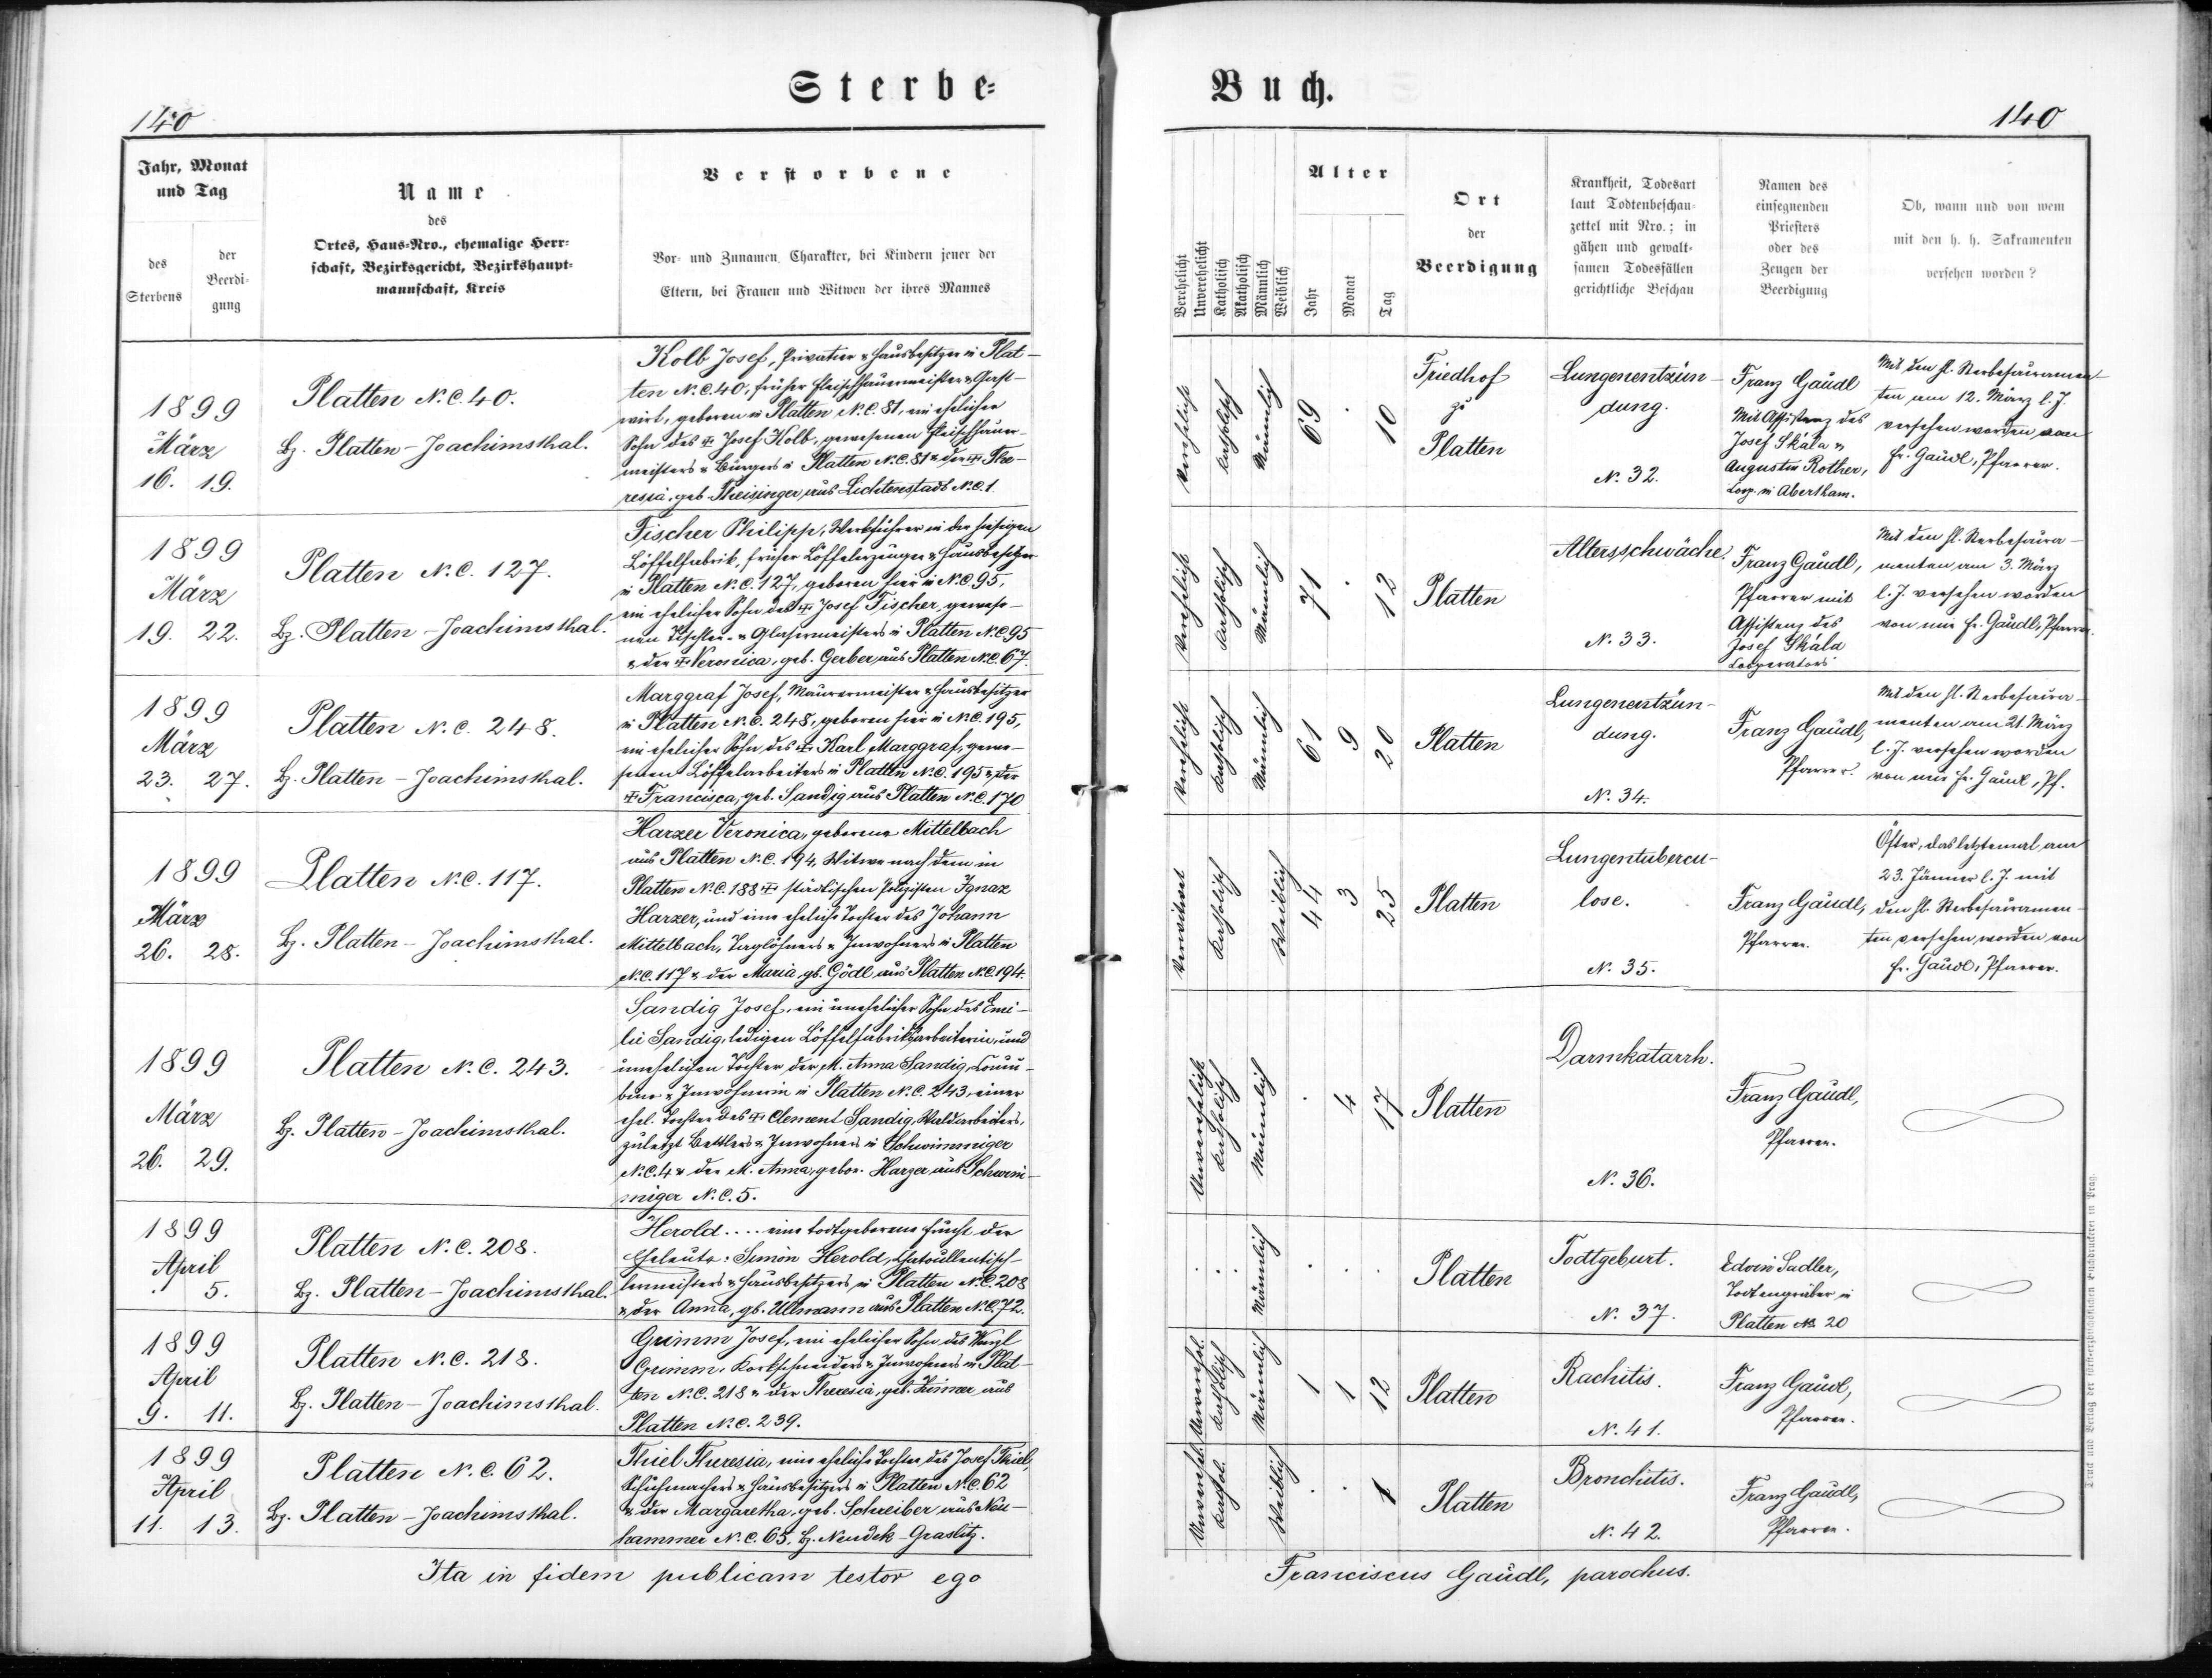 Sterbe-
140
Jahr, Monat
und Tag
des
Sterbens
der
Beerdi-
gung
Name
des
Ortes, Haus-Nro., ehemalige Herr-
schaft, Bezirksgericht, Bezirkshaupt-
mannschaft, Kreis
Verstorbene
Vor- und Zunamen, Charakter, bei Kindern jener der
Eltern, bei Frauen und Witwen der ihres Mannes
1899
März
16. 19.
Platten N.C. 40.
Bz. Platten - Joachimsthal.
Kolb Josef, Privatier & Hausbesitzer in Plat-
ten N.C. 40, früher Fleischhauermeister & Gast-
wirt, geboren in Platten N.C. 81, ein ehelicher
Sohn des ✝ Josef Kolb, gewesenen Fleischhauer-
meisters & Bürgers in Platten N.C. 81 & der ✝ The-
resia, geb. Theisinger aus Lichtenstadt N.C. 1.
1899
März
19. 22.
Platten N.C. 127.
Bz. Platten - Joachimsthal.
Fischer Philipp, Werkführer in der hiesigen
Löffelfabrik, früher Löffelerzeuger & Hausbesitzer
in Platten N.C. 127, geboren hier in N.C. 95,
ein ehelicher Sohn des ✝ Josef Fischer, gewese-
nen Tischler- & Glasermeisters in Platten N.C. 95
& der ✝ Veronica, geb. Gerber aus Platten N.C. 67.
1899
März
23. 27.
Platten N.C. 248.
Bz. Platten - Joachimsthal.
Marggraf Josef, Maurermeister & Hausbesitzer
in Platten N.C. 248, geboren hier in N.C. 195,
ein ehelicher Sohn des ✝ Karl Marggraf, gewe-
senen Löffelarbeiters in Platten N.C. 195 & der
✝ Francisca, geb. Sandig aus Platten N.C. 170
1899
März
26. 28.
Platten N.C. 117.
Bz. Platten - Joachimsthal.
Harzer Veronica, geborene Mittelbach
aus Platten N.C. 194, Witwe nach dem in
Platten N.C. 188 ✝ städtischen Polizisten Ignaz
Harzer, und eine eheliche Tochter des Johann
Mittelbach, Taglöhners & Inwohners in Platten
N.C. 117 & der Maria gb. Gödl aus Platten N.C. 194.
1899
März
26. 29.
Platten N.C. 243.
Bz. Platten - Joachimsthal.
Sandig Josef, ein unehelicher Sohn des Emi-
lie Sandig, ledigen Löffelfabriksarbeiterin, und
unehelichen Tochter der M. Anna Sandig,
& Inwohnerin in Platten N.C. 243, einer
ehel. Tochter des ✝ Clement Sandig, Waldarbeiters,
zuletzt Bettlers & Inwohners in Schwimmiger
N.C. 4 & der M. Anna, gebor. Harzer aus Schwim-
miger N.C. 5.
1899
April
. 5.
Platten N.C. 208.
Bz. Platten - Joachimsthal.
Herold .... eine todtgeborene Frucht der
Eheleute: Simon Herold, Chatoullentisch-
lermeisters & Hausbesitzers in Platten N.C. 208
& der Anna, gb. Ullmann aus Platten N.C. 72.
1899
April
9. 11.
Platten N.C. 218.
Bz. Platten - Joachimsthal.
Grimm Josef, ein ehelicher Sohn des Wenzl
Grimm, Korkschneiders & Inwohners in Plat-
ten N.C. 218 & der Theresia, geb. aus
Platten N.C. 239.
1899
April
11. 13.
Platten N.C. 62.
Bz. Platten - Joachimsthal.
Thiel Theresia, eine eheliche Tochter des Josef Thiel,
Schuhmachers & Hausbesitzers in Platten N.C. 62
& der Margaretha, geb. Schreiber aus Neu-
hammer N.C. 65, Bz. Neudek - Graslitz.
Ita in fidem publicam testor ego
Buch.
140
Verehelicht
Unverehelicht
Katholisch
Akatholisch
Männlich
Weiblich
Alter
Jahr
Monat
Tag
Ort
der
Beerdigung
Krankheit, Todesart
laut Todtenbeschau-
zettel mit Nro.; in
gähen und gewalt-
samen Todesfällen
gerichtliche Beschau
Namen des
einsegnenden
Priesters
oder des
Zeugen der
Beerdigung
Ob, wann und von wem
mit den h. h. Sakramenten
versehen worden?
Verehelicht
Katholisch
Männlich
69 . 10
Friedhof
zu
Platten
Lungenentzün-
dung.
N. 32.
Franz Gaudl
Mit Assistenz des
Josef Skála &
Augustin Rother,
Coop. in Abertham.
Mit den hl. Sterbesacramen-
ten am 12. März l. J.
versehen worden von
Fr. Gaudl, Pfarrer.
Verehelicht
Katholisch
Männlich
71 . 12
Platten
Altersschwäche.
N. 33.
Franz Gaudl,
Pfarrer mit
Assistenz des
Josef Skála
Cooperators
Mit den hl. Sterbesacra-
menten am 3. März
l. J. versehen worden
von mir Fr. Gaudl, Pfarrer.
Verehelicht
Katholisch
Männlich
61 9 20
Platten
Lungenentzün-
dung.
N. 34.
Franz Gaudl,
Pfarrer.
Mit den hl. Sterbesacra-
menten am 21. März
l. J. versehen worden
von mir Fr. Gaudl, Pf.
Verwitwet
Katholisch
Weiblich
44 3 25
Platten
Lungentubercu-
lose.
N. 35.
Franz Gaudl,
Pfarrer.
Öfter, das letztemal am
23. Jänner l. J. mit
den hl. Sterbesacramen-
ten versehen worden von
Fr. Gaudl, Pfarrer.
Unverehelicht
Katholisch
Männlich
. 4 17
Platten
Darmkatarrh.
N. 36.
Franz Gaudl,
Pfarrer.
. . Männlich . . .
Platten
Todtgeburt.
N. 37.
Edwin Sadler,
Todtengräber in
Platten N. 20
Unverehel.
Katholisch
Männlich
1 1 12
Platten
Rachitis.
N. 41.
Franz Gaudl,
Pfarrer.
Unverehel.
Kathol.
Weiblich
. . 1
Platten
Bronchitis.
N. 42.
Franz Gaudl,
Pfarrer.
Franciscus Gaudl, parochus.
Druck und Verlag der fürst-erzbischöflichen Buchdruckerei in Prag.